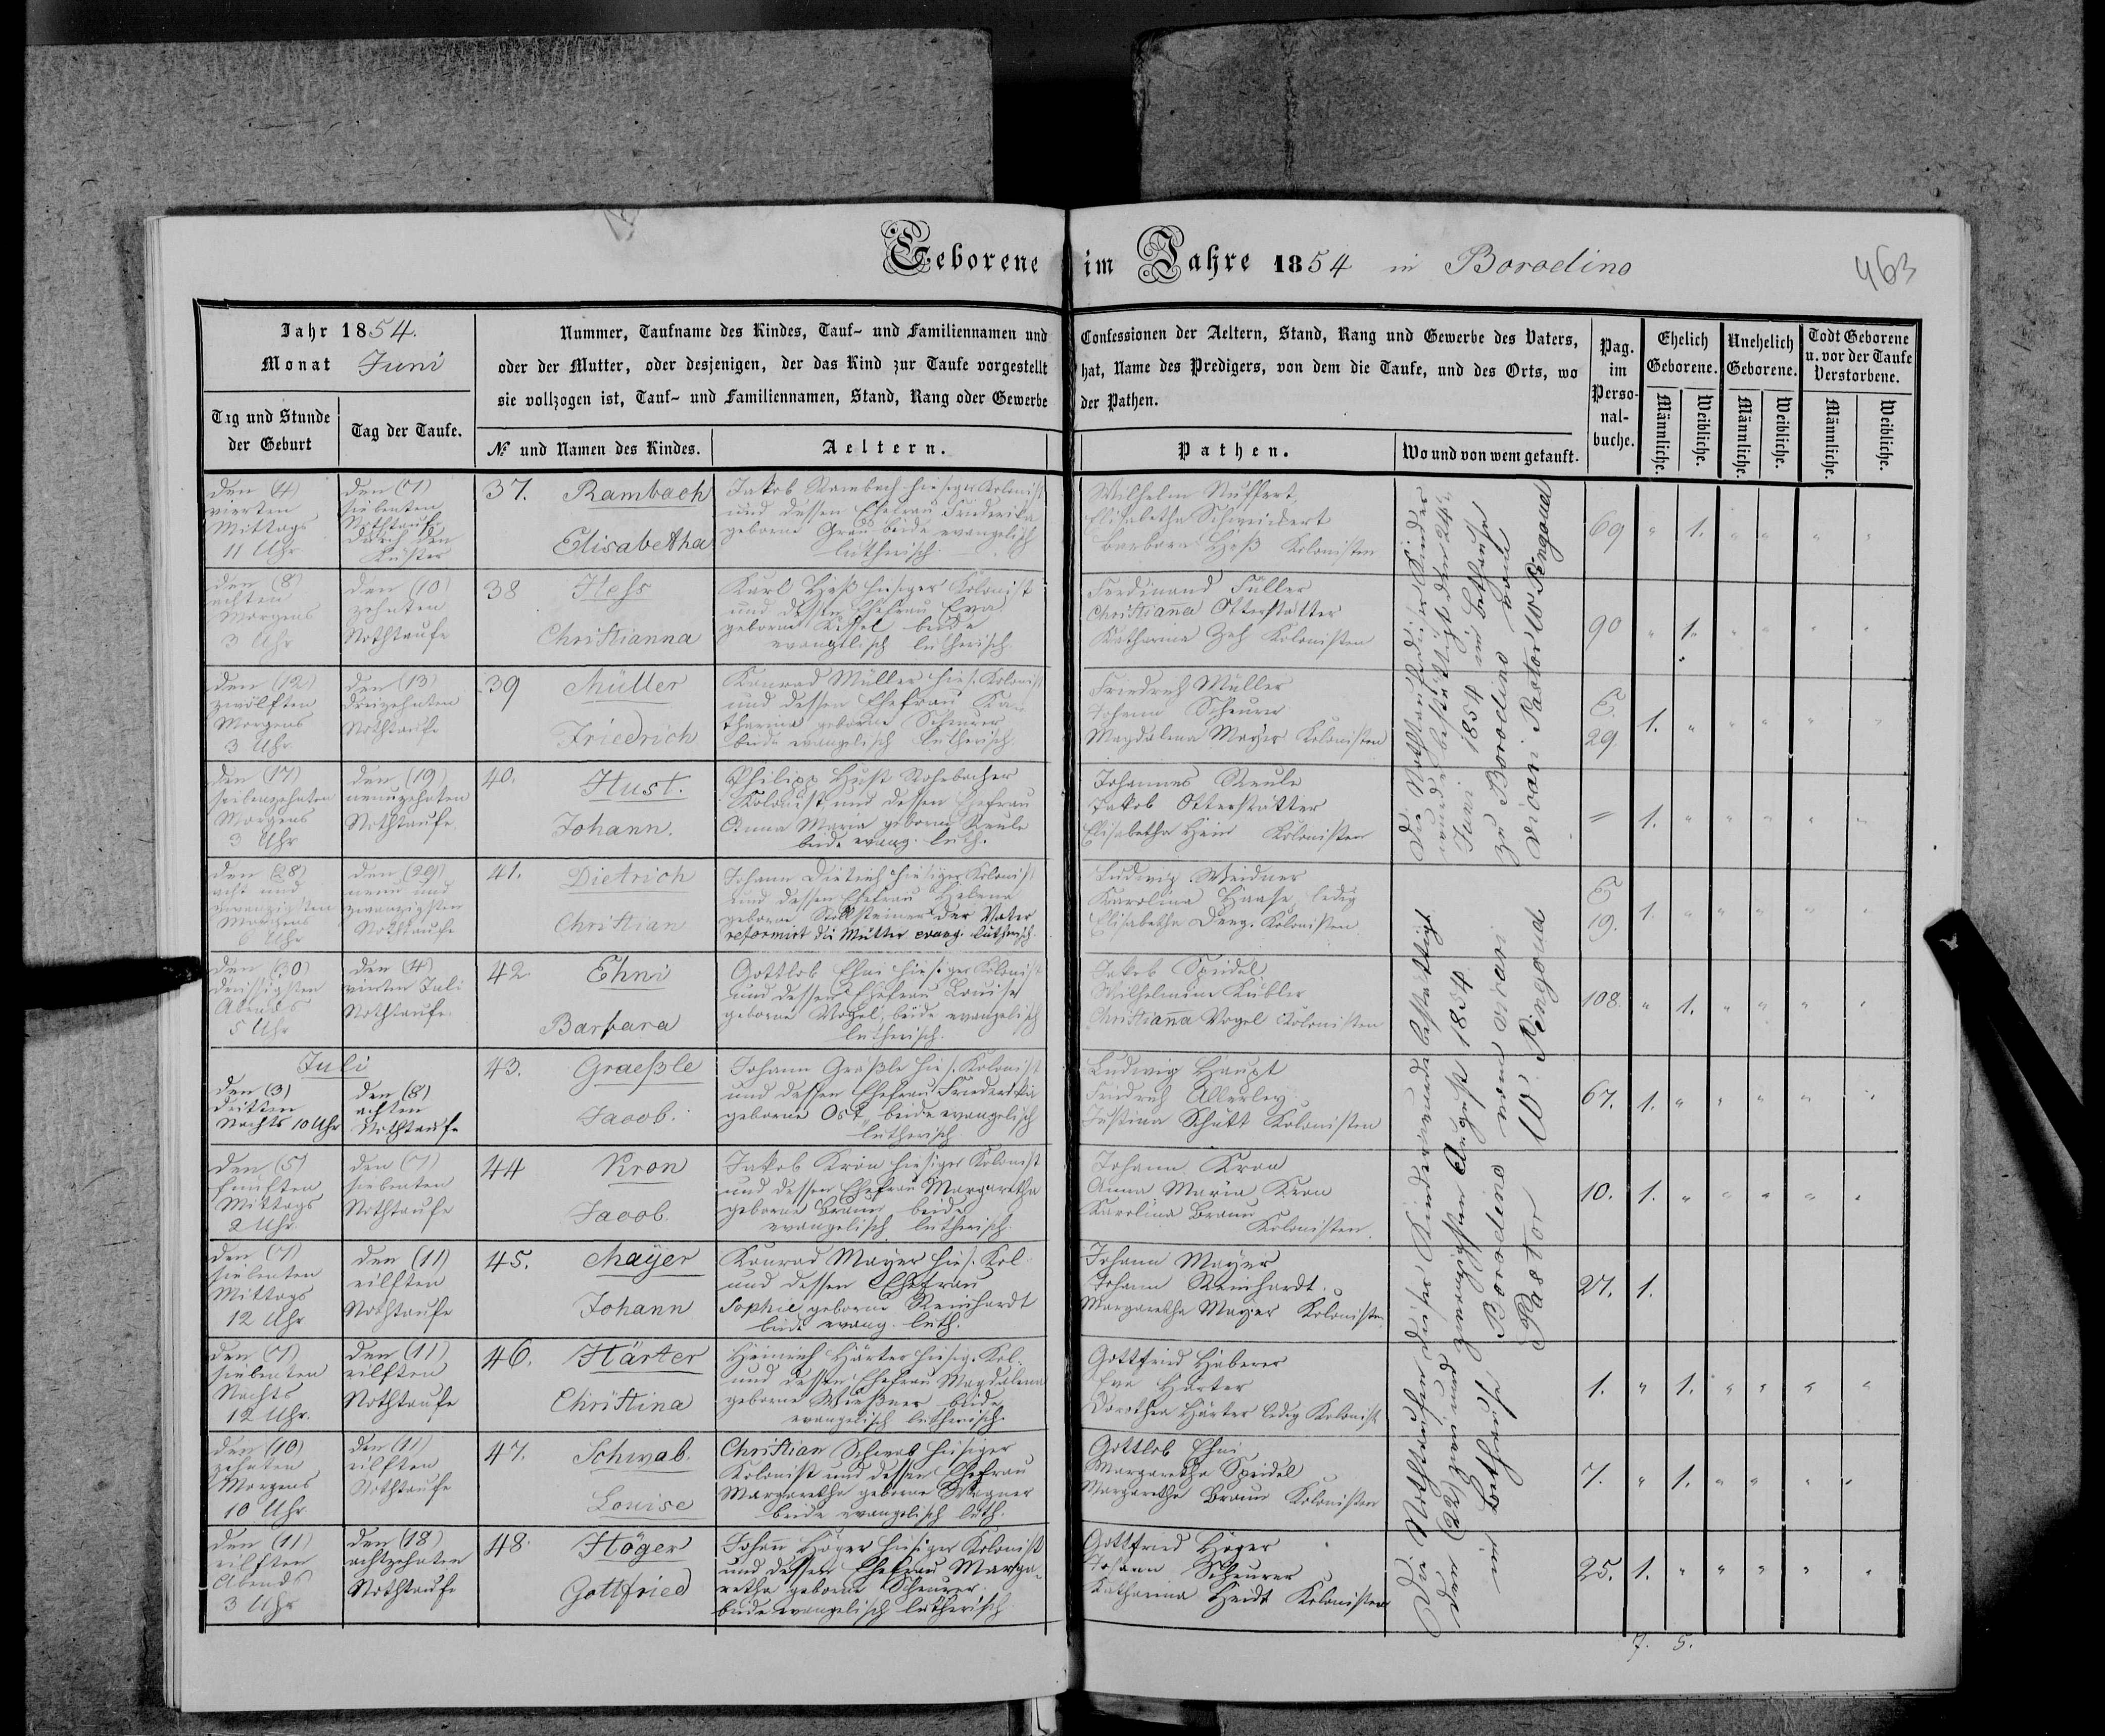 Geborene im Jahre 1854 in Borodino
463
Jahr 1854.
Monat Juni
Nummer, Taufname des Kindes, Tauf- und Familiennamen und Confessionen der Aeltern, Stand, Rang und Gewerbe des Vaters,
oder der Mutter, oder desjenigen, der das Kind zur Taufe vorgestellt hat, Name des Predigers, von dem die Taufe, und des Orts, wo
sie vollzogen ist, Tauf- und Familiennamen, Stand, Rang oder Gewerbe der Pathen.
Pag. im Perso-nal-buche.
Ehelich Geborene.
Unehelich Geborene.
Todt Geborene u. vor der Taufe Verstorbene.
Tag und Stunde der Geburt
Tag der Taufe.
№ und Namen des Kindes.
Aeltern.
Pathen.
Wo und von wem getauft.
Männliche. Weibliche. Männliche. Weibliche. Männliche. Weibliche.
den (4)
vierten
Mittags
11 Uhr
den (7)
siebenten
Nothtaufe
durch den
Küster
37. Rambach
Elisabetha
Jakob Rambach hiesiger Kolonist
und dessen Ehefrau Friederika
geborne Grau beide evangelisch
lutherisch.
Wilhelm Nuffert
Elisabetha Schweickert
Barbara Heß Kolonisten
69 " 1. " " " "
den (8)
achten
Morgens
3 Uhr
den (10)
zehnten
Nothtaufe
38 Hess
Christianna
Karl Heß hiesiger Kolonist
und dessen Ehefrau Eva
geborne Kissel beide
evangelisch lutherisch.
Ferdinand Füller
Christianna Otterstätter
Katharina Zeh Kolonisten
90 " 1. " " " "
den (12)
zwölften
Morgens
3 Uhr
den (13)
dreizehnten
Nothtaufe
39 Müller
Friedrich
Konrad Müller hies. Kolonist
und dessen Ehefrau Ka-
tharina geborne Scheurer
beide evangelisch lutherisch.
Friedrich Müller
Johann Scheurer
Magdalena Mayer Kolonisten
29. 1. " " " " "
den (17)
siebenzehnten
Morgens
3 Uhr
den (19)
neunzehnten
Nothtaufe
40. Hust.
Johann.
Philipp Hust Rohrbacher
Kolonist und dessen Ehefrau
Anna Maria geborne Keule
beide evang. luth.
Johannes Keule
Jakob Otterstätter
Elisabetha Hein Kolonisten
" 1. " " " " "
den (28)
acht und
zwanzigsten
Morgens
6 Uhr
den (29)
neun und
zwanzigsten
Nothtaufe
41. Dietrich
Christian
Johann Dietrich hiesiger Kolonist
und dessen Ehefrau Helena
geborne Stollsteiner der Vater
reformirt die Mutter evang. lutherisch.
Ludwig Weidner
Karolina Haase ledig
Elisabetha Kolonisten.
19. 1. " " " " "
den (30)
dreissigsten
Abends
5 Uhr
den (4)
vierten Juli
Nothtaufe
42 Ehni
Barbara
Gottlob Ehni hiesiger Kolonist
und dessen Ehefrau Louise
geborne Vogel, beide evangelisch
lutherisch.
Jakob Speidel
Wilhelmine Kübler
Christianna Vogel Kolonisten
108. " 1. " " " "
Juli
den (3)
dritten
Nachts 10 Uhr
den (8)
achten
Nothtaufe
43. Graeßle
Jacob.
Johann Gräßle hies. Kolonist
und dessen Ehefrau Friederika
geborne Ost, beide evangelisch
lutherisch
Ludwig Haupt
Friedrich Allerley
Justina Schütt Kolonisten
67. 1. " " " " "
den (5)
fünften
Mittags
2 Uhr.
den (7)
siebenten
Nothtaufe
44 Kron
Jacob.
Jakob Kron hiesiger Kolonist
und dessen Ehefrau Margaretha
geborne Braun beide
evangelisch lutherisch.
Johann Kron
Anna Maria Kron
Karolina Braun
Kolonisten.
10. 1. " " " " "
den (7)
siebenten
Mittags
12 Uhr
den (11)
eilften
Nothtaufe
45. Mayer
Johann
Konrad Mayer hies. Kol.
und dessen Ehefrau
Sophie geborne Reinhardt
beide evang. luth.
Johann Mayer
Johann Reinhardt
Margaretha Mayer Kolonisten
27. 1.
den (7)
siebenten
Nachts
12 Uhr.
den (11)
eilften
Nothtaufe
46. Härter
Christina
Heinrich Härter hiesig. Kol.
und dessen Ehefrau Magdalena
geborne Wießner beide
evangelisch lutherisch.
Gottfried Häberer
Eva Härter
Dorothea Härter ledig Kolonist
1. " 1. " " " "
den (10)
zehnten
Morgens
10 Uhr
den (11)
eilften
Nothtaufe
47. Schwab.
Louise
Christian Schwab hiesiger
Kolonist und dessen Ehefrau
Margaretha geborne Wagner
beide evangelisch luth.
Gottlob Ehni
Margaretha Speidel
Margaretha Braun Kolonisten
7. " 1. " " " "
den (11)
eilften
Abends
3 Uhr
den (18)
achtzehnten
Nothtaufe
48. Höger
Gottfried
Johann Höger hiesiger Kolonist
und dessen Ehefrau Marga-
retha geborne Scheurer
beide evangelisch lutherisch
Gottfried Höger
Johann Scheurer
Katharina Heidt Kolonisten
25. 1. " " " " "
7. 5.
Die Nothtaufen dieser Kinder
wurde bestättigt den 24ten
Juni 1854 im Bethause
zu Borodino vom
Vicari Pastor W Pingoud
Die Nothtaufen dieser Kinder wurde bestättigt
den (22) zwei und zwanzigsten August 1854
im Bethause Borodino vom Vicari
Pastor W Pingoud